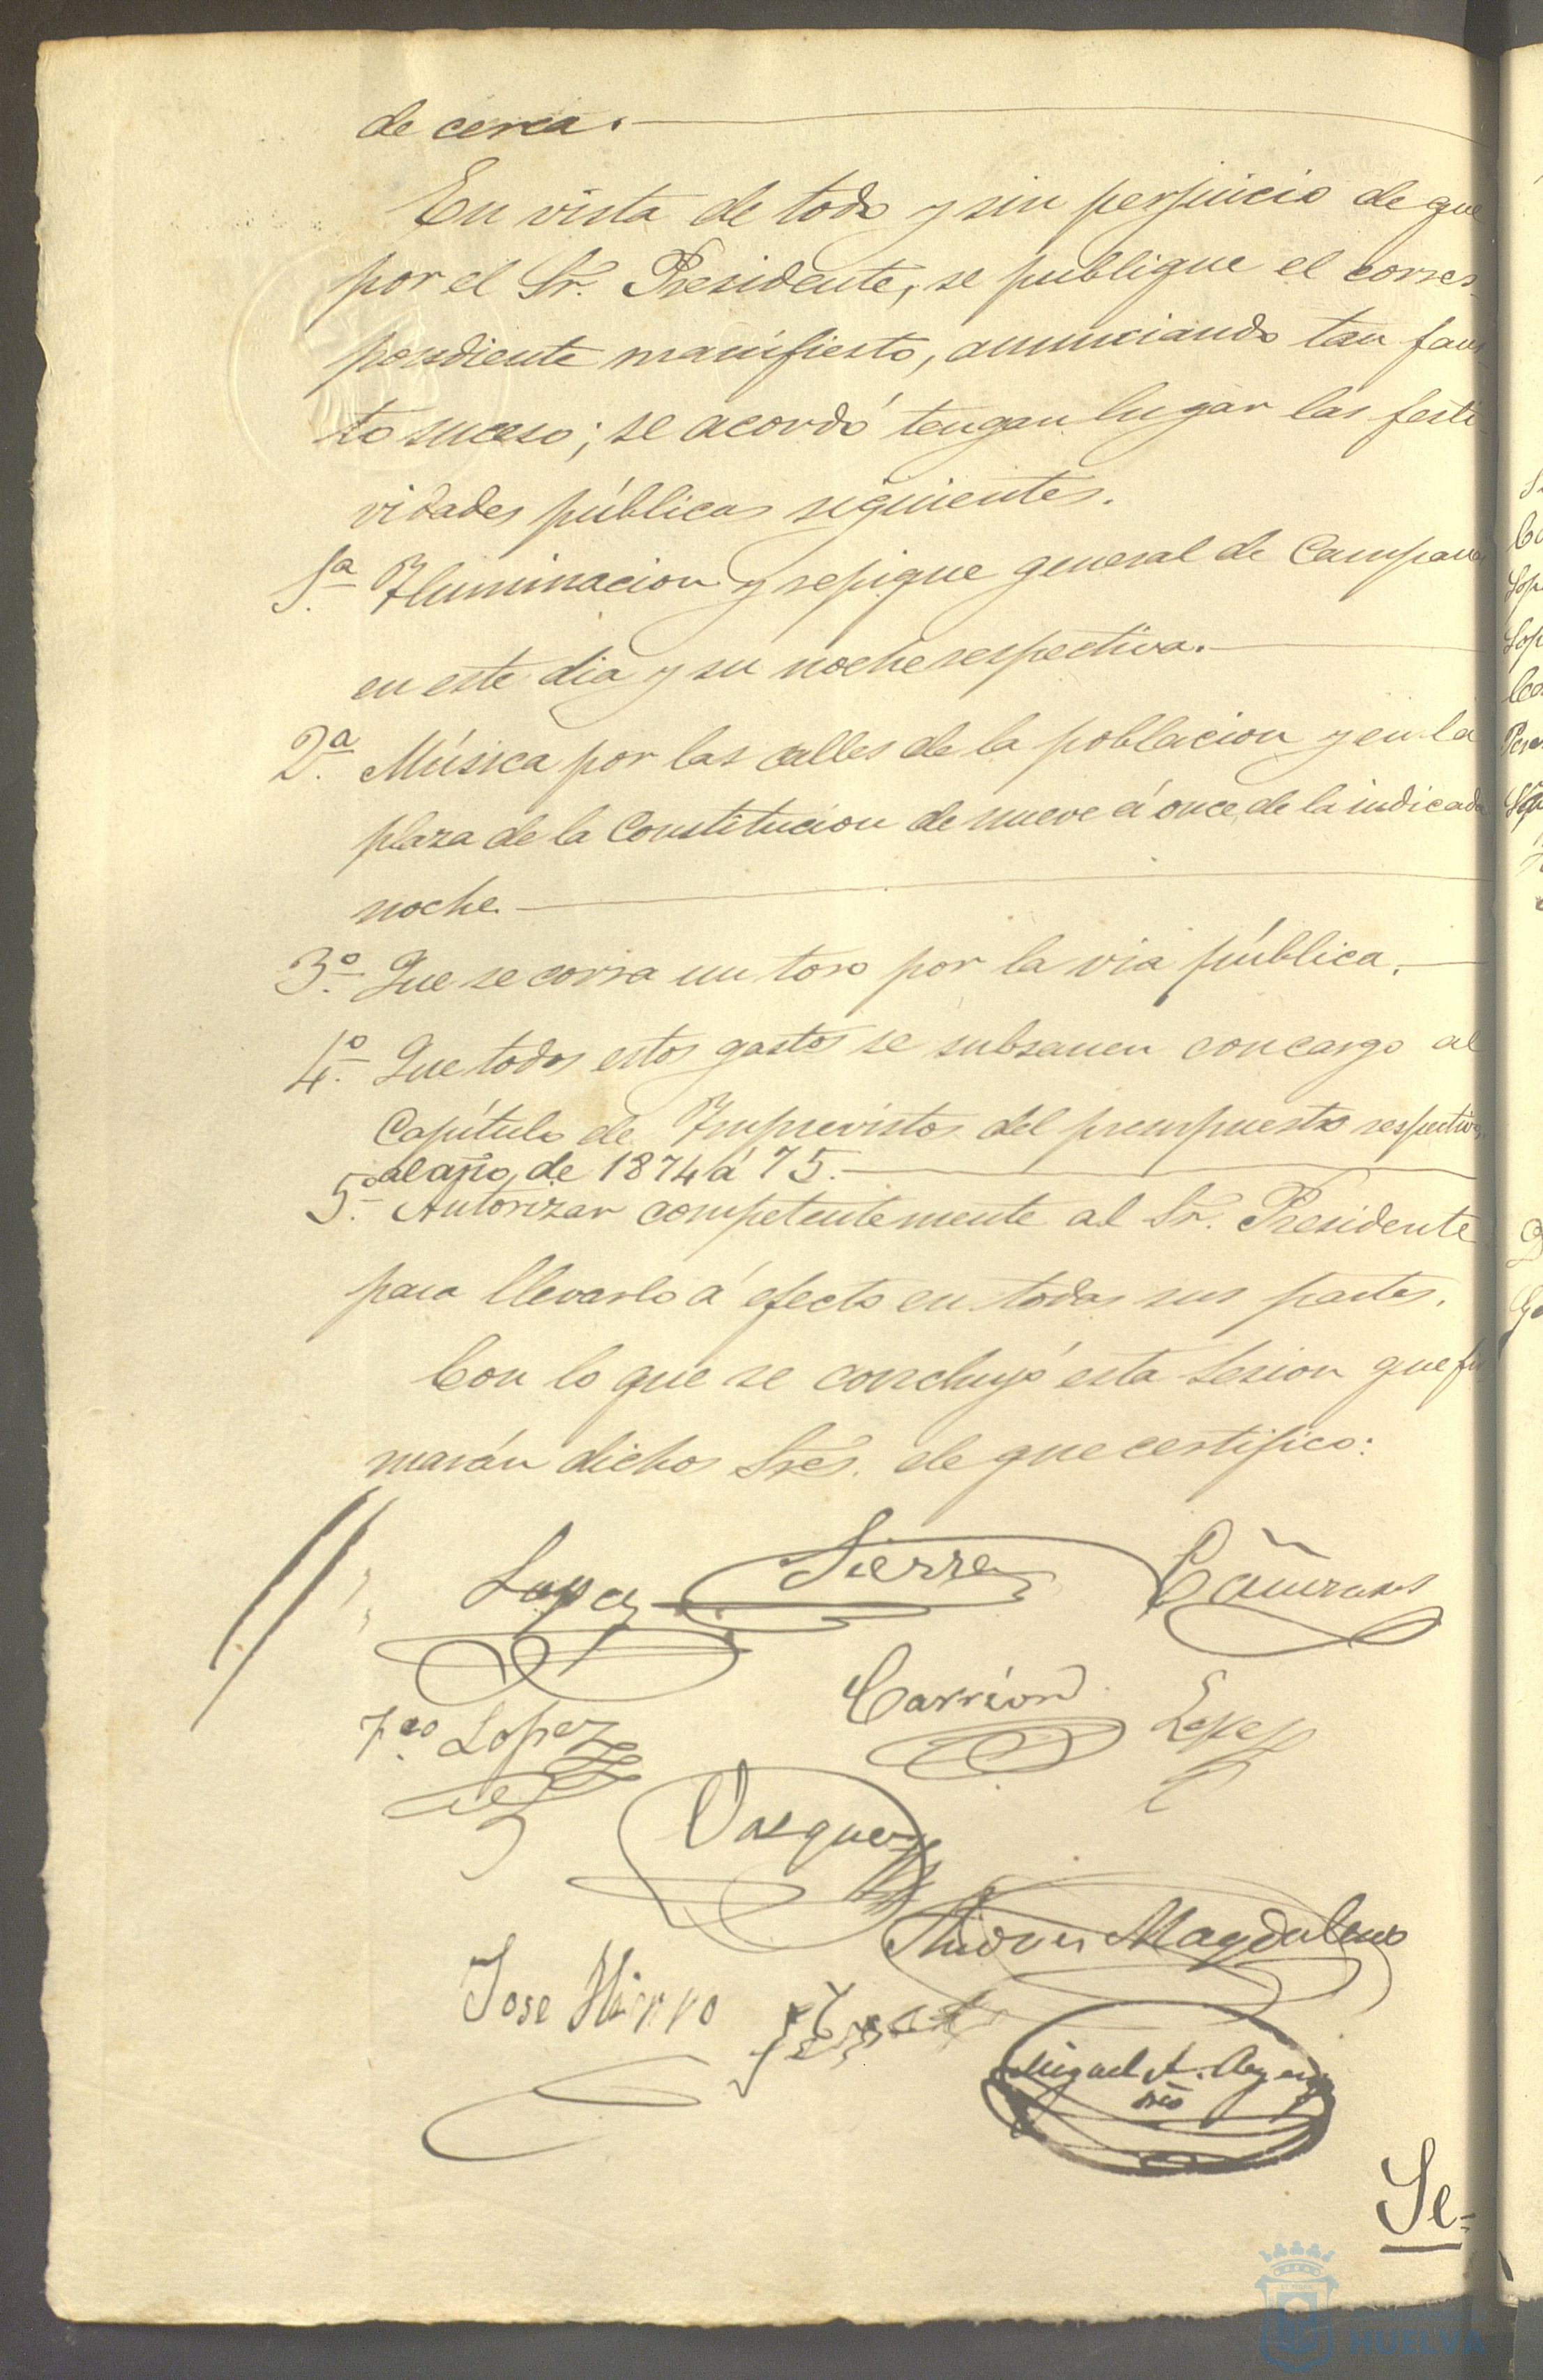 de cerca.
En vista de todo y sin perjuicio de que
por el Sr. Presidente, se publique el corres-
pondiente manifiesto, anunciando tan faus
to suceso; se acordó tengan lugar las festi-
vidades públicas siguientes.
1.ª Iluminacion y repique general de Campanas
en este dia y su noche respectiva.
2.ª Música por las calles de la poblacion y en la
plaza de la Constitucion de nueve á once de la indicada
noche.
3.º Que se corra un toro por la via pública.
4.º Que todos estos gastos se subsanen con cargo al
Capítulo de Imprevistos del presupuesto respectivo
al año de 1874 á 75.
5.º Autorizar competentemente al Sr. Presidente
para llevarlo á efecto en todas sus partes.
Con lo que se concluyó esta sesion que fir
marán dichos Sres. de que certifico:
Lopez Sierra
Carrion Lopez
Fco Lopez
Vasquez
Magdaleno
Jose Hierro
Miguel A.
srio
Se-
HUELVA